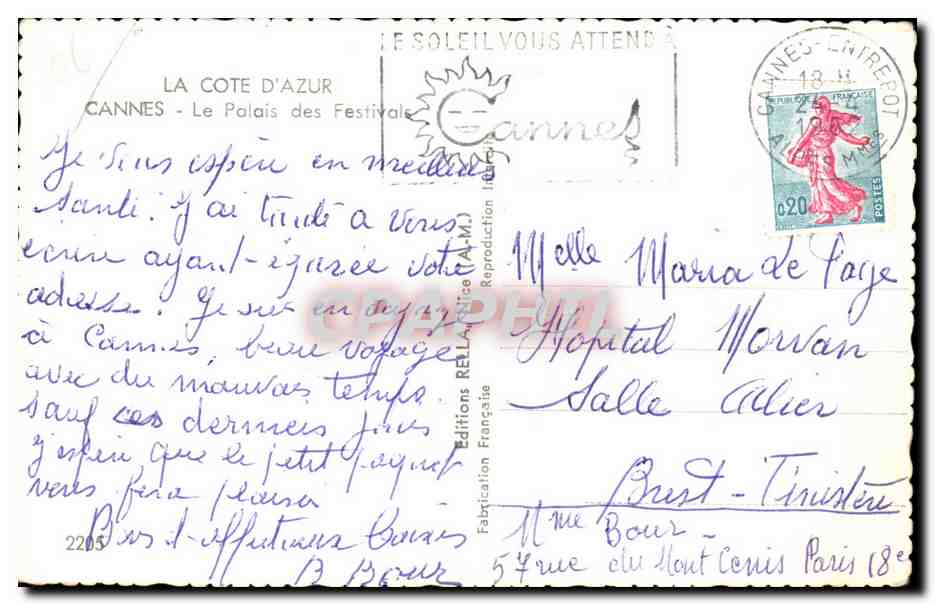 LE SOLEIL VOUS ATTEND À
Cannes
CANNES-ENTREPOT
18 H
24-4
196
A
MMES
REPUBLIQUE FRANÇAISE
0,20
POSTES
LA COTE D'AZUR
CANNES - Le Palais des Festivals
Je vous espère en meilleure
santé. J'ai tardé à vous
écrire ayant égarée votre
adresse. Je suis en voyage
à Cannes, beau voyage
avec du mauvais temps
sauf ces derniers jours
j'espère que le petit paquet
vous fera plaisir
Bien affectueux baisers
B Bour
2205
Editions RELLA, Nice (A.-M.)
Fabrication Française
Reproduction Interdite
CPAPHIL
Melle Maria Le Page
Hopital Morvan
Salle
Brest - Finistère
Mme Bour -
57 rue du Mont Cenis Paris 18e